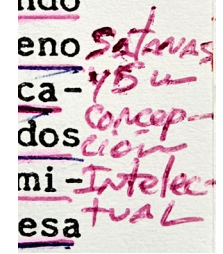 ndo
eno
ca-
dos
mi-
esa
Satanas
y su
Concep-
ción
Intelec-
tual